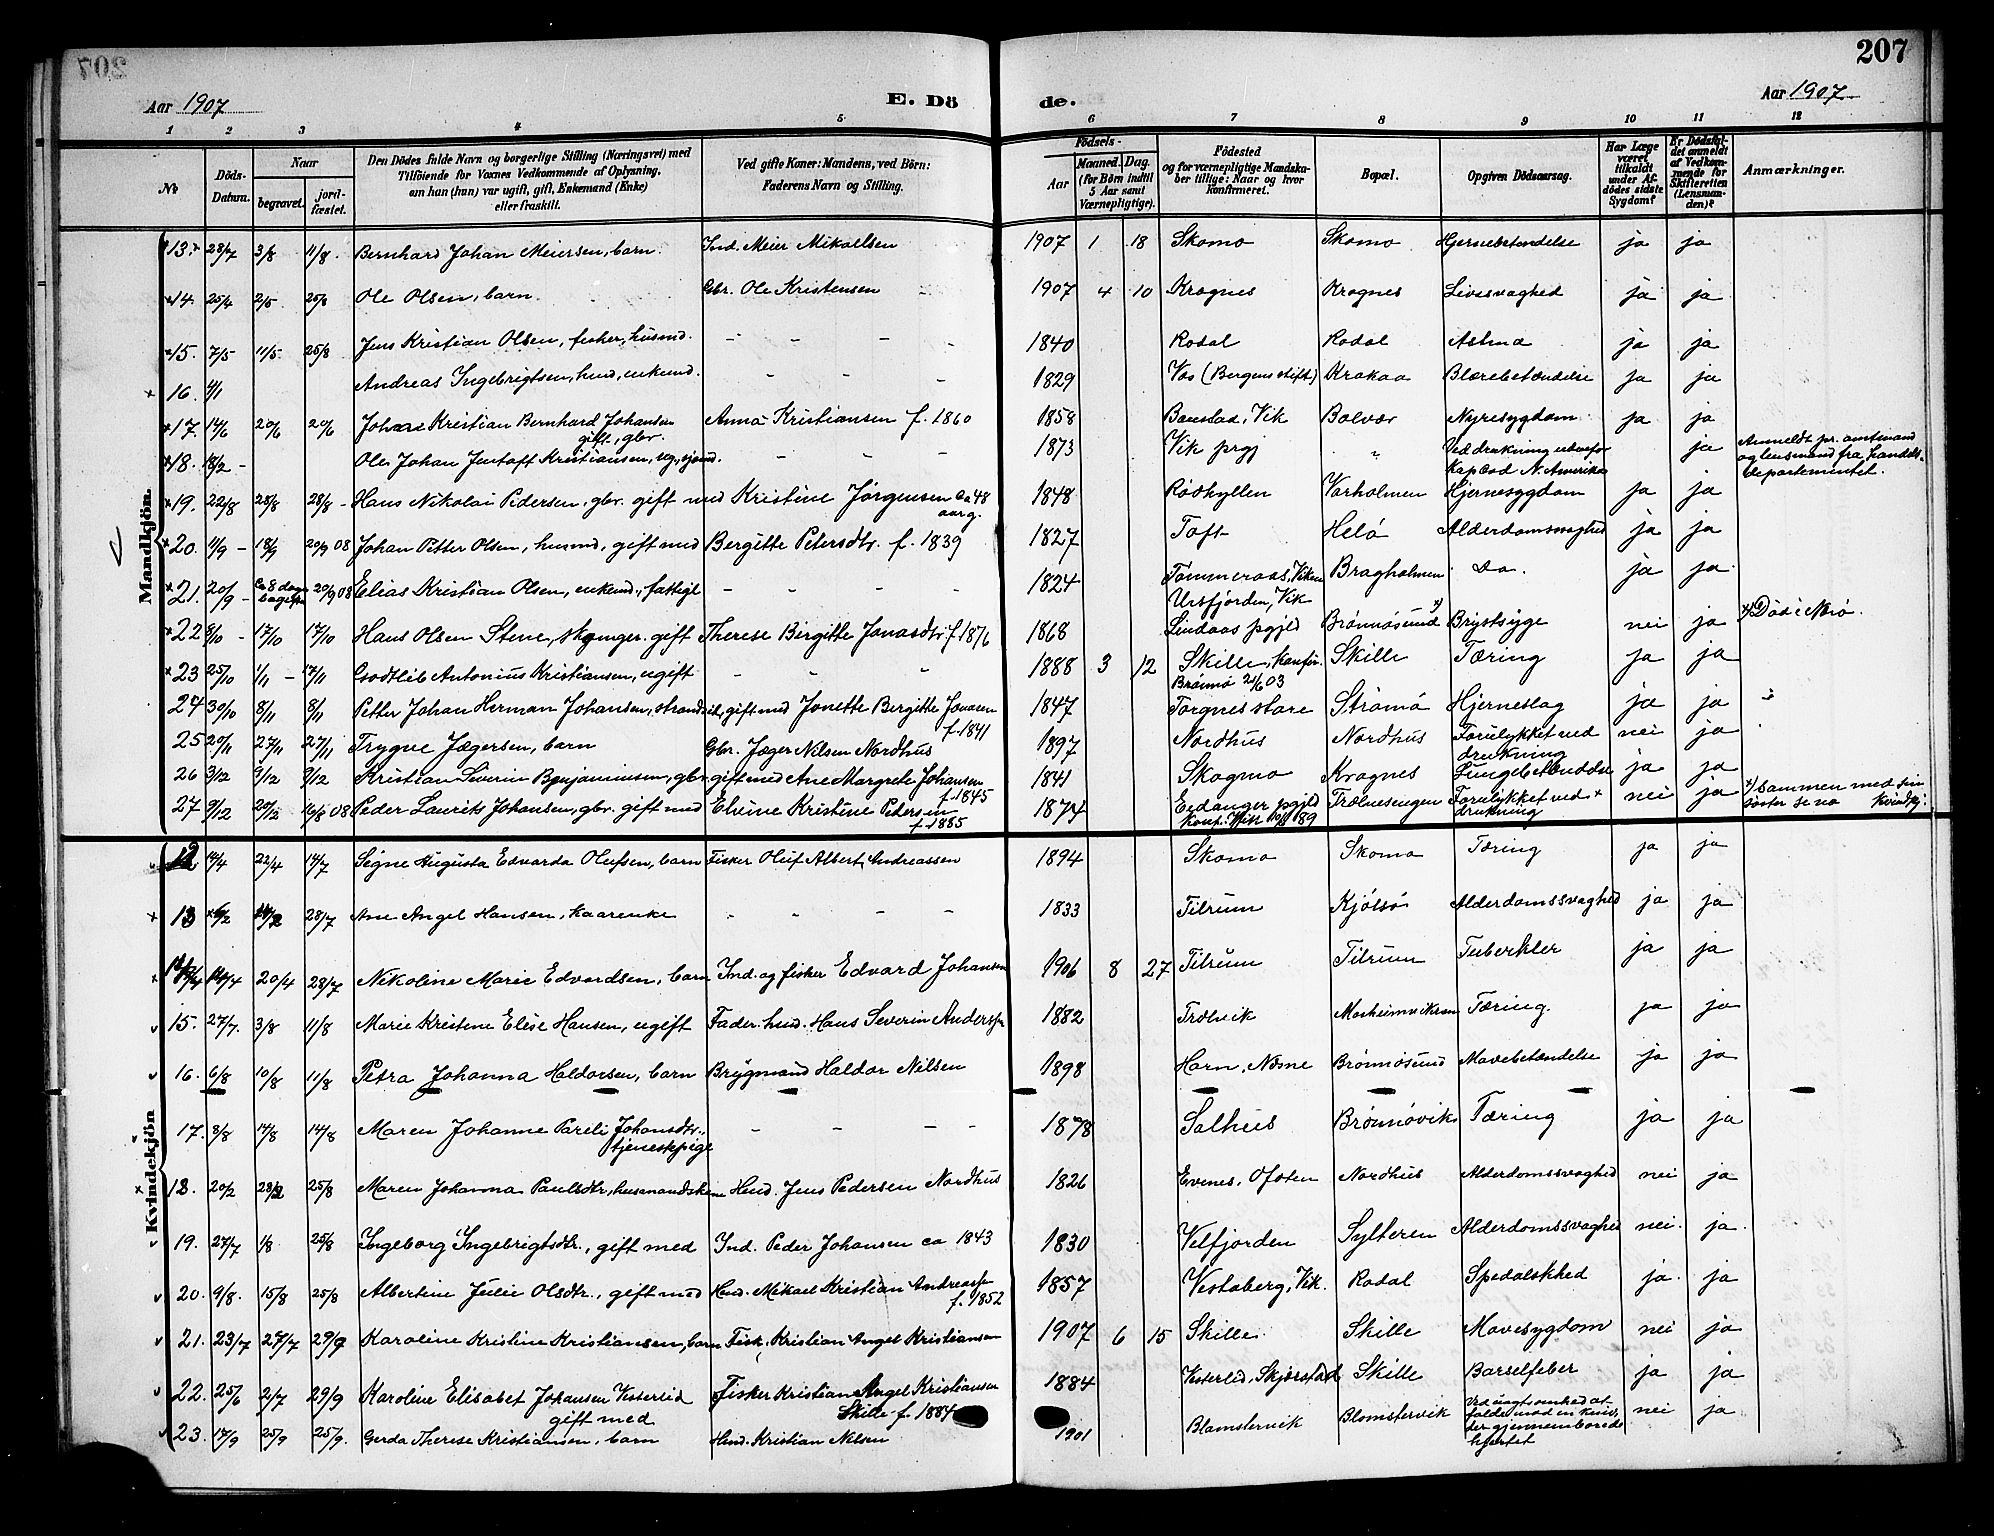 207
Aar 1907
E. Dö
de.
Aar 1907
1 2 3 4 5 6 7 8 9 10 11 12
No
Döds-Datum.
Naar
begravet.
jord-fæstet.
Den Dödes fulde Navn og borgerlige Stilling (Næringsvei) med
Tilföiende for Voxnes Vedkommende af Oplysning,
om han (hun) var ugift, gift, Enkemand (Enke)
eller fraskilt.
Ved gifte Koner: Mandens, ved Börn:
Faderens Navn og Stilling.
Födsels-
Aar
Maaned. Dag.
(for Börn indtil
5 Aar samt
Værnepligtige).
Födested
og for værnepligtige Mandska-
ber tillige: Naar og hvor
konfirmeret.
Bopæl.
Opgiven Dödsaarsag.
Har Læge
været
tilkaldt
under Af-
dödes sidste
Sygdom?
Er Dödsfal-
det anmeldt
af Vedkom-
mende for
Skifteretten
(Lensman-
den)?
Anmærkninger.
Mandkjön.
13. 28/7 3/8 11/8. Bernhard Johan Meiersen, barn. Ind. Meier Mikaelsen 1907 1 18 Skomo Skomo Hjernebetendelse ja ja
14. 25/4 2/5 25/6 Ole Olsen, barn. Gbr. Ole Kristensen 1907 4 10 Krognes Krognes Livssvaghed ja ja
15. 7/5 11/5 25/8 Jens Kristian Olsen, fisker, husmd. - - - 1840 Rodal Rodal Astma ja ja
16. 4/1 Andreas Ingebrigtsen, husd, enkemd. - - - 1829 Vos (Bergens stift) Krokaa Blærebetændelse ja ja
17. 14/6 20/6 20/6 Johan Kristian Bernhard Johansen Anna Kristiansen f. 1860 1858 Baustad, Vik Bolvær Nyresygdom ja ja
gift, gbr.
18. 18/2 - Ole Johan Jentoft Kristiansen, ug, sjømd. - - - 1873 Vik prgj " Ved drukning udenfor ja Anmeldt pr. amtmand
Kap Cod N. Amerika og lensmand fra Handels-
departementet.
19. 22/8 28/8 28/8 - Hans Nikolai Pedersen, gbr. gift med Kristine Jørgensen ca 48 1848 Rødhyllen Varholmen Hjernesygdom ja ja
aarg.
20. 11/9 - 18/9 20/9 08 Johan Petter Olsen, husmd, gift med Bergitte Petersdtr. f. 1839 1827 Toft Helø Alderdomssvaghed ja ja
21. 20/9 - ca 8 dage 20/9 08 Elias Kristian Olsen, enkemd., fattigl - - - 1824 Tømmeraas, Viken Bragholmen Do. ja ja
Ursfjorden, Vik
22 8/10 - 17/10 17/10 Hans Olsen Stene, gift Therese Birgitte Jonasdtr f. 1876 1868 Lindaas pgjld Brønnøsund x) Brystsyge nei ja x) Død i Brø.
23 25/10 1/11 - 17/11 Godtlib Antonius Kristiansen, ugift - - 1888 3 12 Skille, konfir. Skille Tæring ja ja
Brønnø 21/6 03
24 30/10 8/11 8/11 Petter Johan Herman Johansen, strandsit, gift med Jonette Bergitte Jonasen 1847 Torgnesstare Strømø Hjerneslag ja ja
f. 1841
25 20/11 27/11 27/11 Trygve Jægersen, barn Gbr. Jæger Nilsen Nordhus 1897 Nordhus Nordhus Forulykket ved nei ja
drukning
26 3/12 9/12 9/12 Kristian Severin Benjaminsen, gbr. gift med Ane Margrete Johansen 1841 Skogmo Krognes Lungebetændelse ja ja
f. 1845
27 9/12 20/12 16/8 08 Peder Laurits Johansen, gbr. gift med Elvine Kristine Petersen 1874 Eidanger pgjld Trælnesengen Forulykket ved x nei ja x) sammen med sin
f. 1885 Konf. Vik 89 drukning søster se no kvindkj.
Kvindekjön
12 14/4 22/4 14/7 Signe Augusta Edvarda Olufsen, barn Fisker Oluf Albert Andreassen 1894 Skomo Skomo Tæring ja ja
13 28/7 Ane Angel Hansen, kaarenke - - - 1833 Tilrum Kjølsø Alderdomssvaghed ja ja
14 14/4 20/4 28/7 Nikoline Marie Edvardsen, barn Ind. og fisker Edvard Johansen 1906 8 27 Tilrum Tilrum Tuberkler ja ja
15. 27/7. 3/8 11/8 Marie Kristine Elise Hansen, ugift Fader. husd. Hans Severin Anderss. 1882 Trælvik Tæring. ja ja
16. 6/8 10/8 11/8 Petra Johanna Haldorsen, barn Brygmand Haldor Nilsen 1898 Horn, Næsne Brønnøsund Mavebetændelse ja ja
17. 8/8 14/8 14/8 Maren Johanne Pareli Johansdtr., - - - - 1878 Salhus Brønnøvik Tæring ja ja
tjenestepige
18. 20/2 28/2 25/8 Maren Johanna Paulsdtr, husmandskone Husd. Jens Pedersen Nordhus 1826 Evenes, Ofoten Nordhus Alderdomssvaghed nei ja
19. 27/7 1/8 25/8 Ingeborg Ingebrigtsdtr., gift med Ind. Peder Johansen ca 1843 1830 Velfjorden Sylteren Alderdomssvaghed nei. ja.
20. 9/8. 15/8 25/8 Albertine Julie Olsdtr., gift med Husd. Mikael Kristian Andreass. 1857 Vestaberg, Vik. Rodal Spedalskhed ja. ja
f. 1852
21. 23/7 27/7 29/9 Karoline Kristine Kristiansen, barn Fisk. Kristian Angel Kristiansen 1907 6 15 Skille. Skille Mavesygdom nei ja
22. 25/6 2/7 29/9 Karoline Elisabet Johansen Vesterlid Fisker Kristian Angel Kristiansen 1884 Vesterlid, Skjørstad Skille Barselfeber ja ja
gift med Skille f. 1884
23. 17/9 25/9 25/9. Gerda Therese Kristiansen, barn Husd. Kristian Nilsen 1901 Blomstervik Blomstervik Ved uagtsomhed at nei ja
falde med en kniv,
der gjennemborede
hjertet